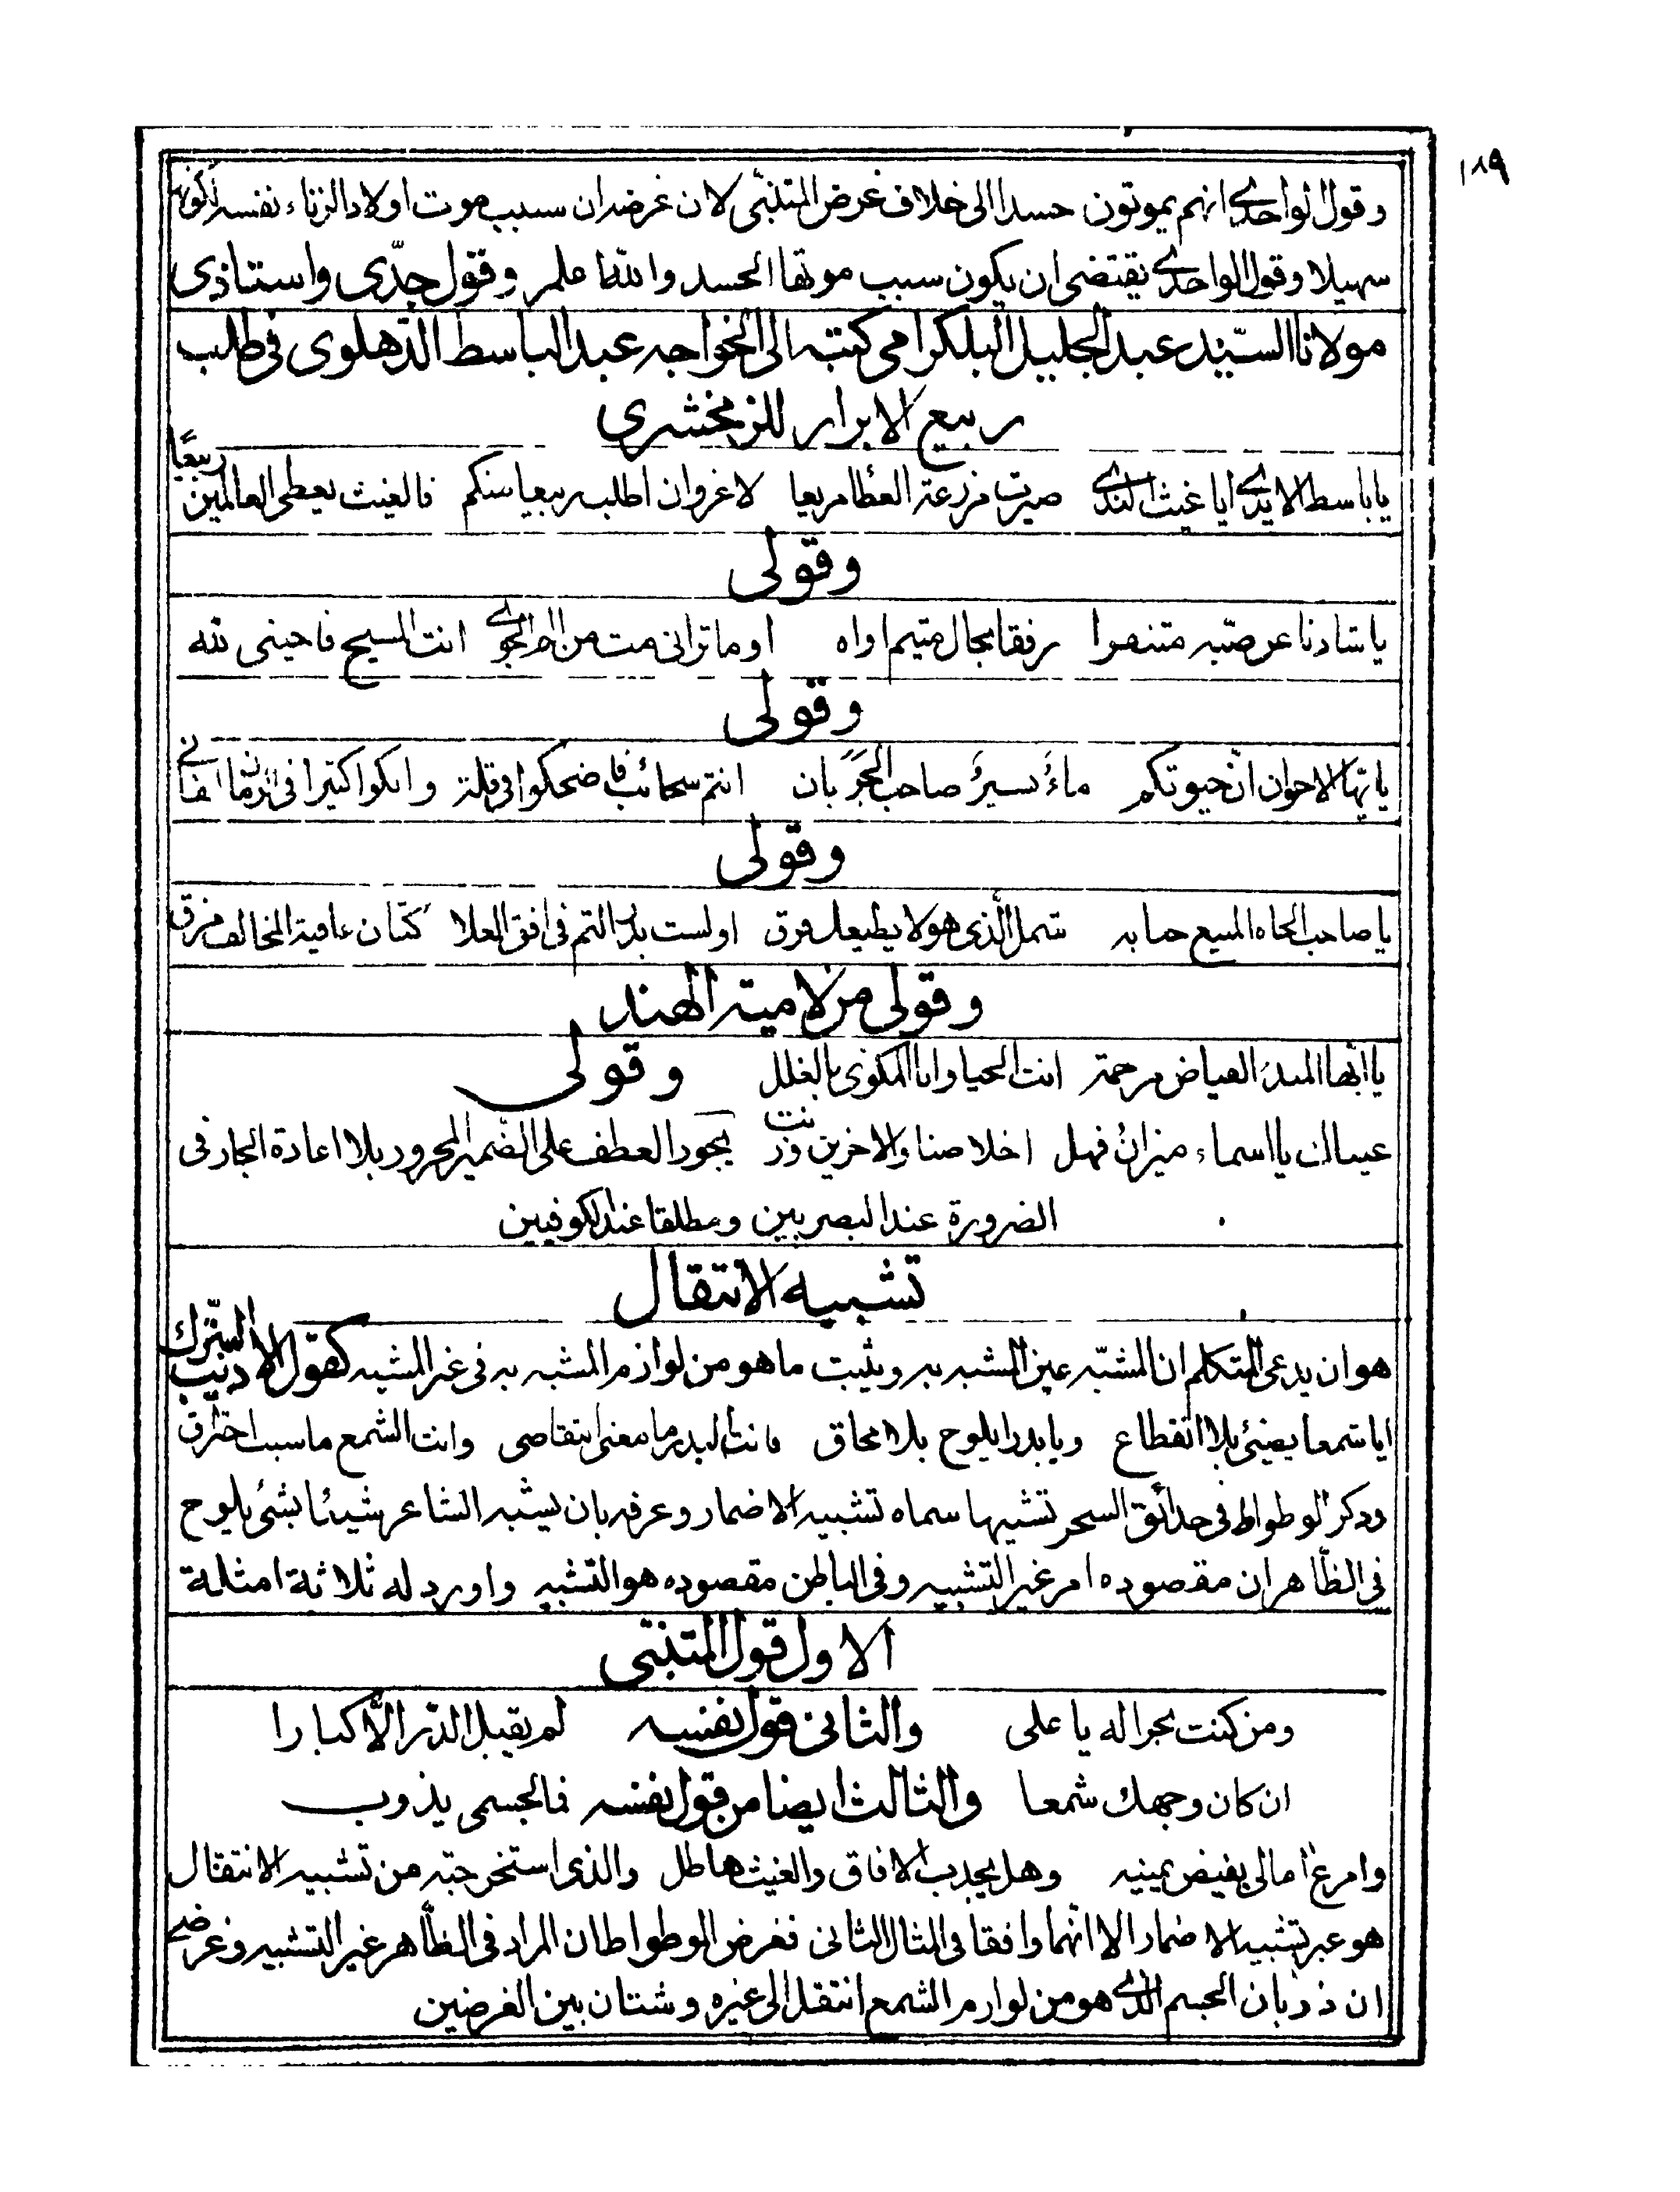 ١٨٩
وقول الواحدي انهم يموتون حسدا الى خلاف غرض المتنبّي لان غرضه ان سبب موت اولاد الزناء نفسه لكونه
سهيلا وقول الواحدي يقتضي ان يكون سبب موتها الحسد والله اعلم وقول جدّي واستاذي
مولانا السيّد عبد الجليل البلكرامي كتبه الى الخواجه عبد الباسط الدّهلوي في طلب
ربيع الابرار للزمخشري
يا باسط الايدي ايا غيث الندي صيرت مزرعة العظا مريعا لا غروان اطلب ربيعا منكم فالغيث يعطي العالمين ربيعًا
وقولي
يا شادنا عن صبّه متنفرا رفقا بحال متيم اواه اوما تراني مت من الم الجوي انت المسيح فاحيني لله
وقولي
يا ايّها الاخوان انّ حيوتكم ماءٌ يسيرٌ صاحب الجَرَيان انتم سحائب فاضحكوا في قلة وابكوا كثيرا في الزمان
وقولي
يا صاحب الجاه المسيع شمل الّذي هو لا يطيعك فرق اولست بدر التم في افق العلا كتّان عافية المخالف مزق
وقولي من لامية الهند
يا ايّها المبدئ الفياض مرحمة انت الحيا وانا المكوي بالغلل وقولي
عيناك يا اسماء ميزانٌ فهل اخلاصنا والاخرين وزنت يجوز العطف على الضمير المجرور بلا اعادة الجار في
الضرورة عند البصريين ومطلقا عند الكوفيين
تشبيه الانتقال
هو ان يدعى المتكلم ان المشبّه عين المشبه به ويثبت ما هو من لوازم المشبه به في غير المشبه كقول الاديب السترك
ايا شمعا يضيئ بلا انقطاع ويا بدرا يلوح بلا محاق فانت البدر ما معنى انتقاصي وانت الشمع ما سبب احتراق
وذكر الوطواط في حدائق السحر تشبيها سماه تشبيه الاضمار وعرفه بان يشبه الشاعر شيئا بشئ يلوح
في الظّاهر ان مقصوده امر غير التشبيه وفي الباطن مقصوده هو التشبيه واورد له ثلاثة امثلة
الاول قول المتنبّي
ومن كنت بحرا له يا علي والثاني قول نفسه لم يقبل الدّر الّا كبارا
ان كان وجهك شمعا والثالث ايضا من قول نفسه فالجسمي يذوب
وامرع امالي بفيض يمينه وهل يجدب الافاق والغيث هاطل والذي استخرجته من تشبيه الانتقال
هو عير تشبيه الاضمار الا انّهما وافقا في المثال الثاني فغرض الوطواط ان المراد في الظّاهر غير التشبيه وغرضي
ان ذوبان الجسم الذي هو من لوازم الشمع انتقل الى غيره وشتان بين الغرضين